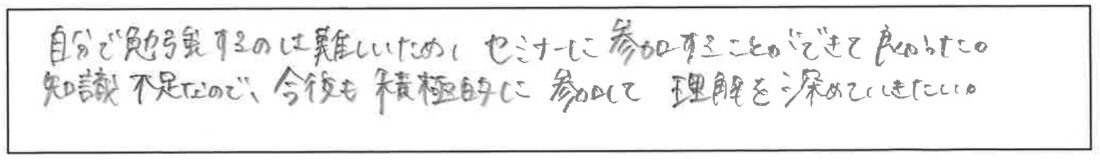 自分で勉強するのは難しいため、セミナーに参加することができて良かった。
知識不足なので、今後も積極的に参加して理解を深めていきたい。